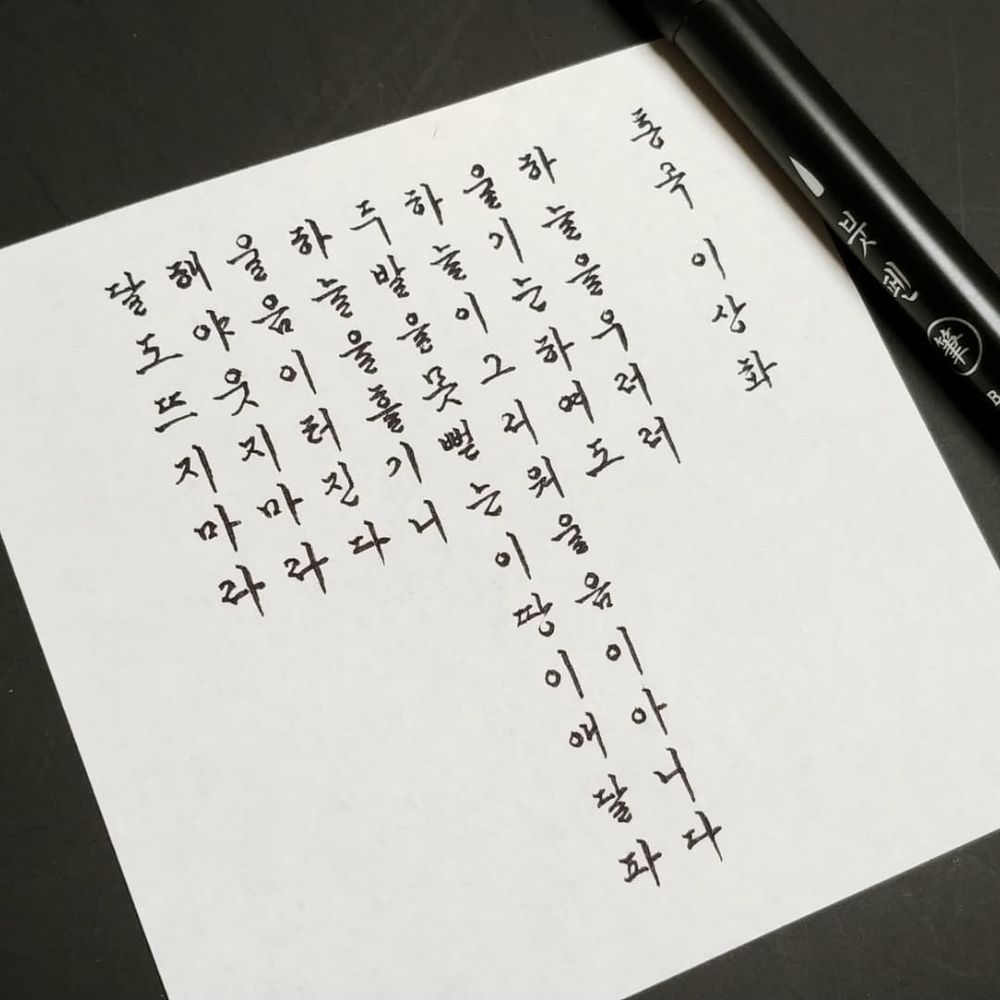 통곡 이상화
하늘을우러러
울기는하여도
하늘이그리워울음이아니다
두발을못뻗는이땅이애달파
하늘을흘기니
울음이터진다
해야웃지마라
달도뜨지마라
붓펜 筆